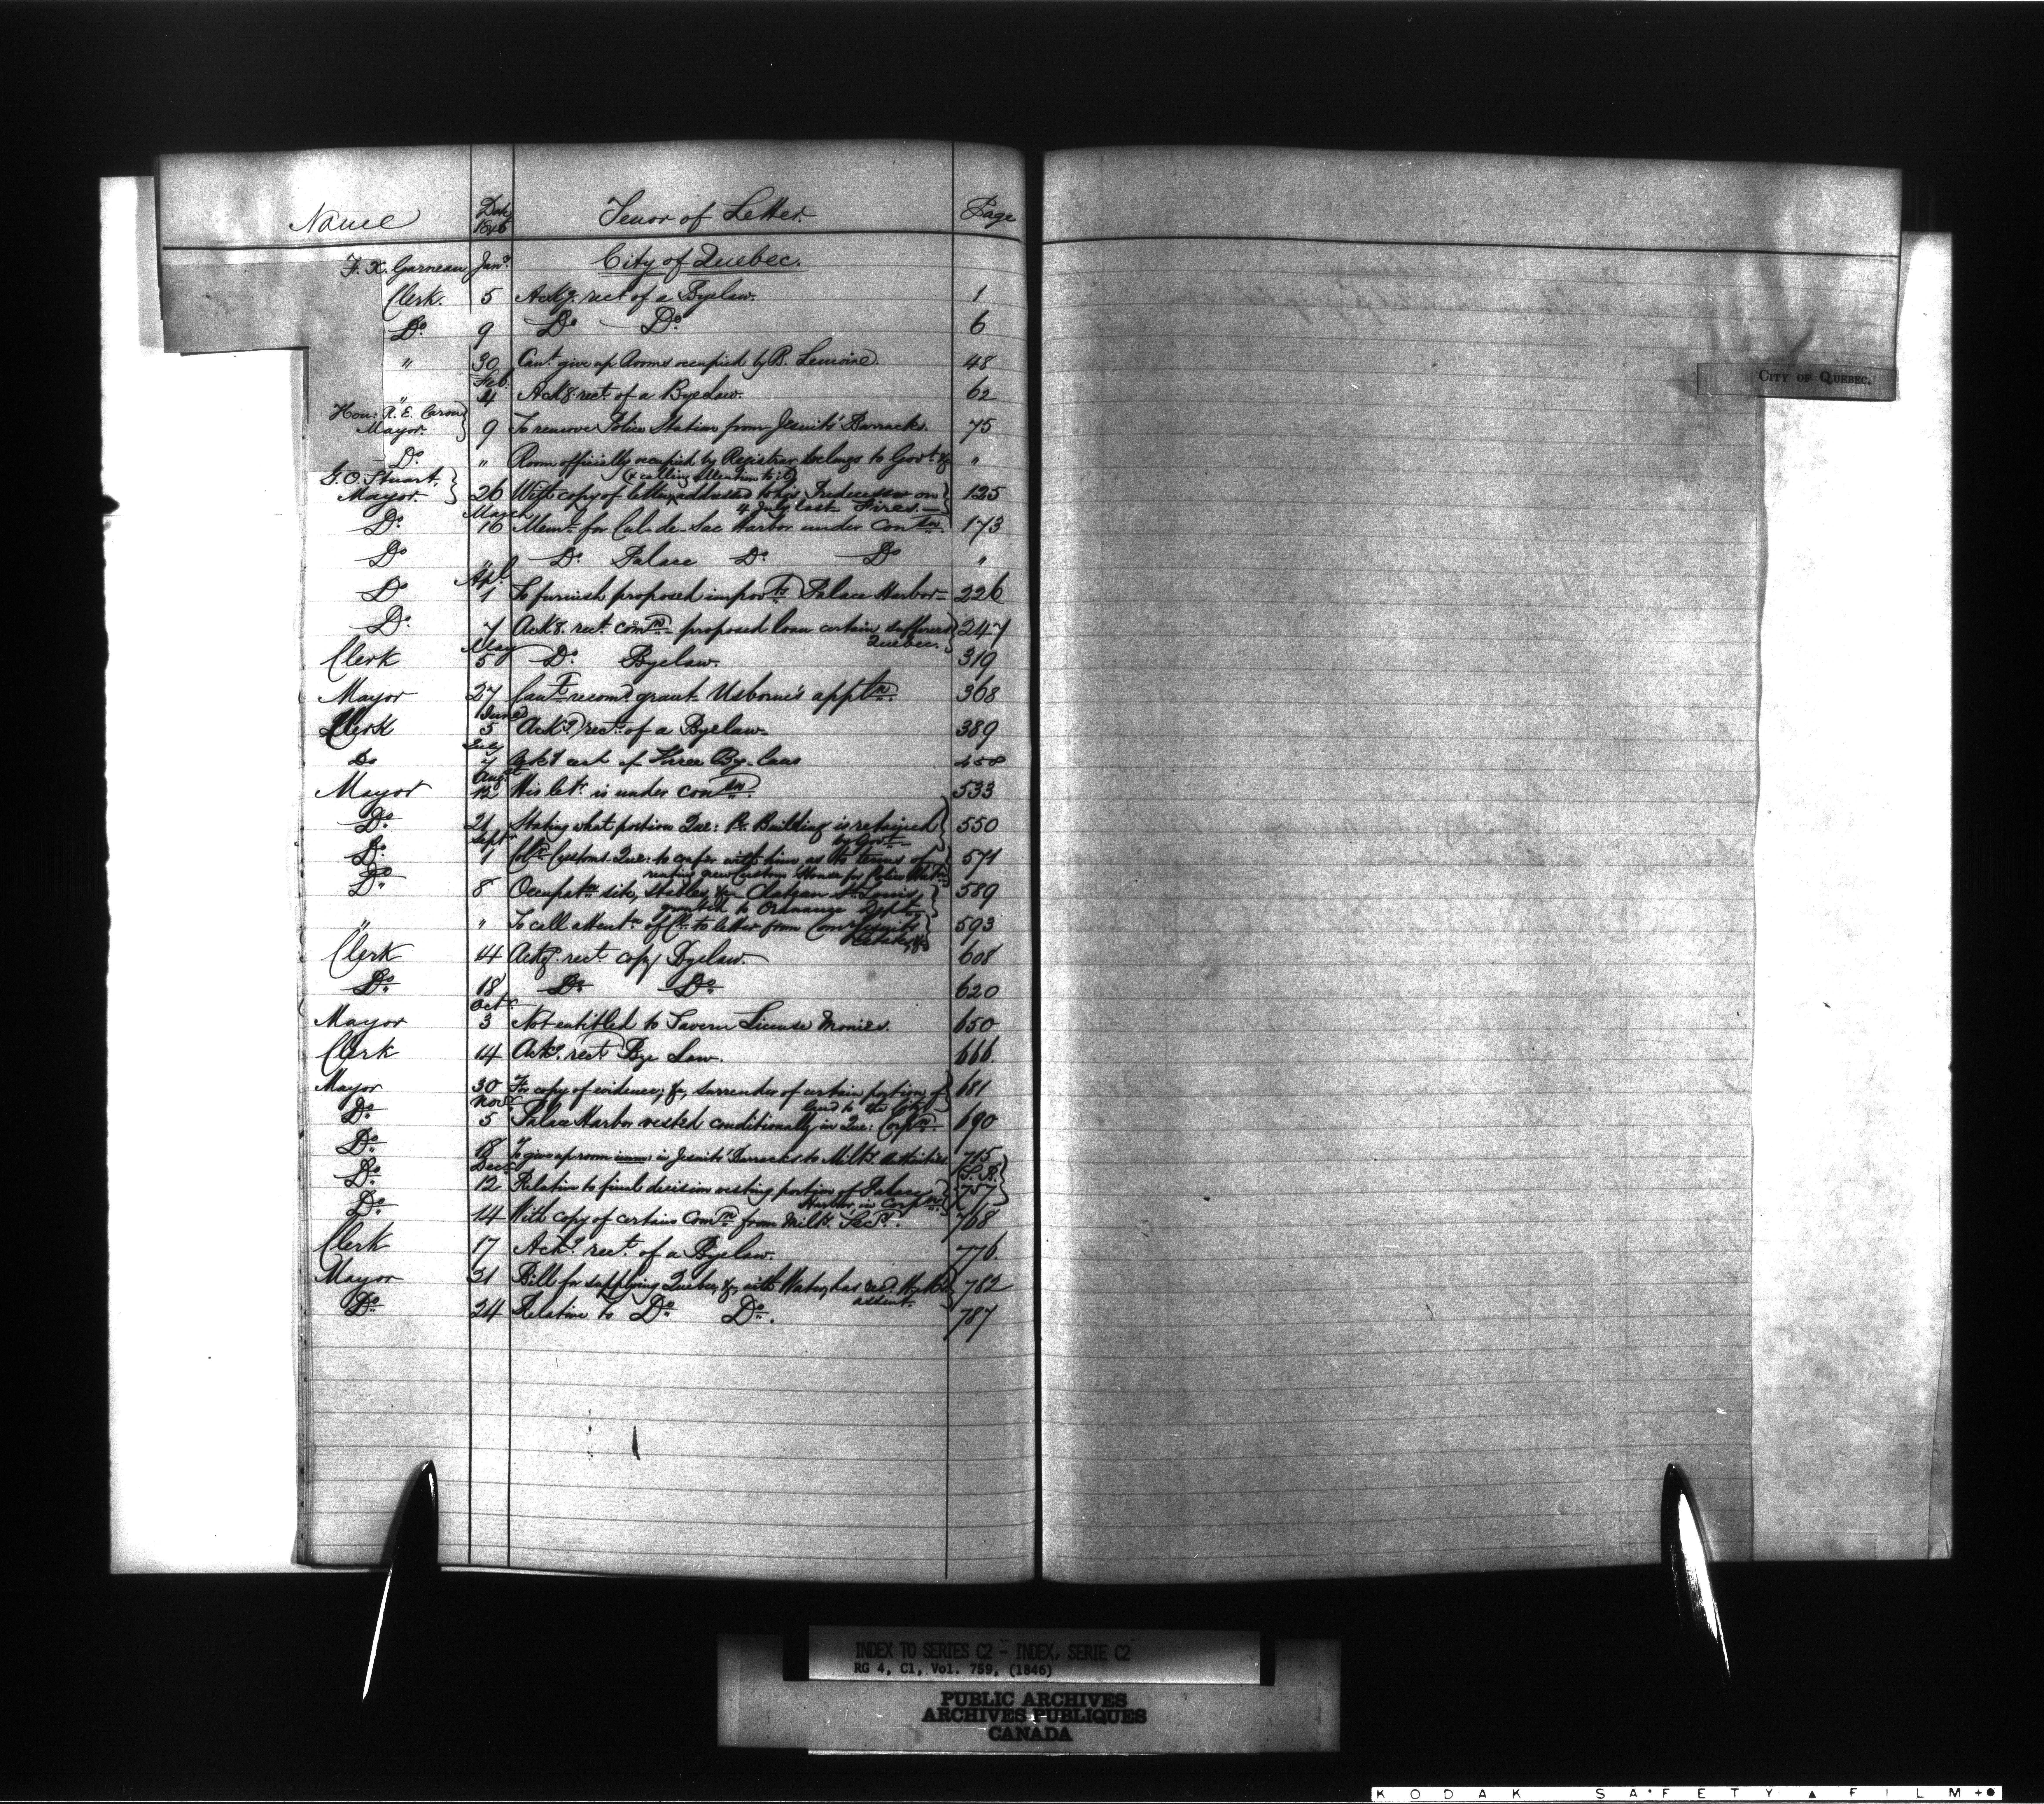 Name Date 1846 Tenor of Letter. Page
City of Quebec.
F. X. Garneau Jany.
Clerk. 5 Ackg. rect. of a Byelaw. 1
Do. 9 Do Do. 6
" 30 Cant. give up Rooms occupied by B. Lemoine. 48
Feb.
" 4 Ackg. rect. of a Byelaw. 62
Hon: R. E. Caron }
Mayor. 9 To remove Police Station from Jesuits' Barracks. 75
Do. " Room officially occupied by Registrar belongs to Govt. &c "
G. O. Stuart, } (& calling attention to it)
Mayor. 26 With copy of letter addressed to his Predecessor on } 125
March 4 July last Fires.—
Do. 16 Memt. for Cul-de-Sac Harbor under Conson. 173
Do " Do. Palace Do. Do "
Apl.
Do 1 To furnish proposed improvts. Palace Harbor— 226
Do. 7 Ackg. rect. comn. proposed loan certain sufferers } 247
May Quebec.
Clerk 5 Do. Byelaw. 319
Mayor 27 Can't recomd. grant Usborne's apptn. 368
June
Clerk 5 Ackg. rect. of a Byelaw. 389
July
Do 7 Ackg rect of Three By-laws 458
Augt.
Mayor 12 His letr. is under conson. 533
Do. 21 Stating what portion Que: Pt. Building is retained } 550
Sept. by Govt.
Do. 1 Colr. Customs Que: to confer with him as to terms of } 571
renting new Custom House for Police Statn.
Do. 8 Occupatn. site, stables, &c Chateau St. Louis, } 589
granted to Ordnance Dept.
" " To call attentn. of Cl. to letter from Comr. Jesuits' } 593
Estates, &c
Clerk 14 Ackg. rect. copy Byelaw. 608
Do. 18 Do. Do. 620
Octr.
Mayor 3 Not entitled to Tavern License Monies. 650
Clerk 14 Ackg. rect. Bye Law. 666.
Mayor 30 For copy of evidence, &c, surrender of certain portion of } 681
Novr. land to the City
Do. 5 Palace Harbor vested conditionally in Que: Corpn. 690
Do. 18 To give up room imm: in Jesuits' Barracks to Milty. authorities 715
Decr. (S. R.
Do. 12 Relative to final decision vesting portion of Palace } 757 }
Harbor in Corpn.
Do. 14 With copy of certain Comn. from Milty. Secy. 768
Clerk 17 Ackg. rect. of a Byelaw. 776.
Mayor 21 Bill for supplying Quebec, &c, with Water, has recd. } 782
assent.
Do. 24 Relative to Do. Do. 787
CITY OF QUEBEC.
INDEX TO SERIES C2 - INDEX, SERIE C2
RG 4, C1, Vol. 759, (1846)
PUBLIC ARCHIVES
ARCHIVES PUBLIQUES
CANADA
KODAK SAFETY FILM